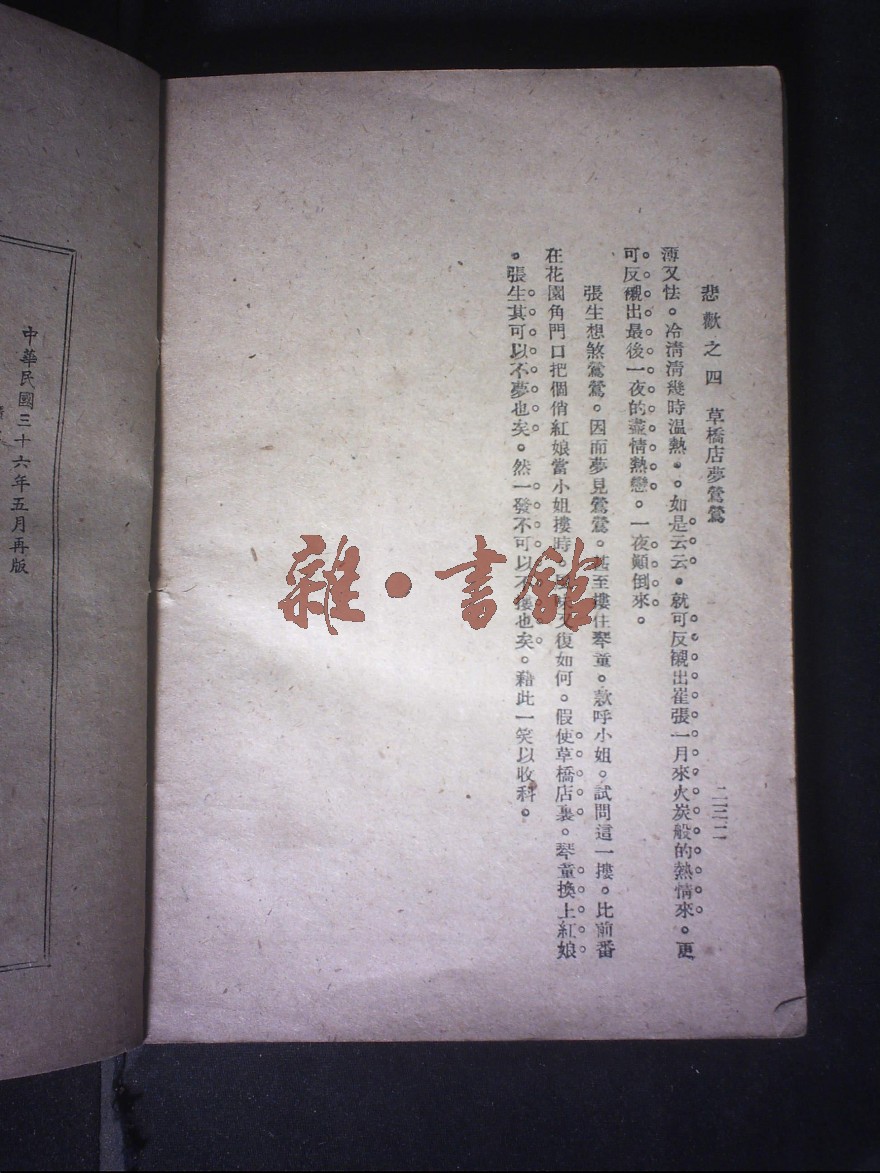 悲歡之四　草橋店夢鶯鶯
二三二
薄又怯。冷清清幾時溫熱。。如是云云。就可反襯出崔張一月來火炭般的熱情來。更
可反襯出最後一夜的盡情熱戀。一夜顛倒來。
張生想煞鶯鶯。因而夢見鶯鶯。甚至摟住琴童。款呼小姐。試問這一摟。比前番
在花園角門口把個俏紅娘當小姐摟時。又復如何。假使草橋店裏。琴童換上紅娘
。張生其可以不夢也矣。然一發不可以不摟也矣。藉此一笑以收科。
中華民國三十六年五月再版
雜·書館